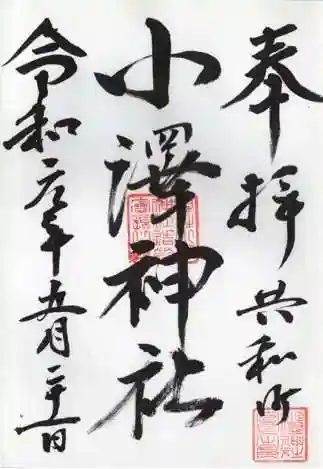 奉拝 共和町
小澤神社
令和元年五月二十一日